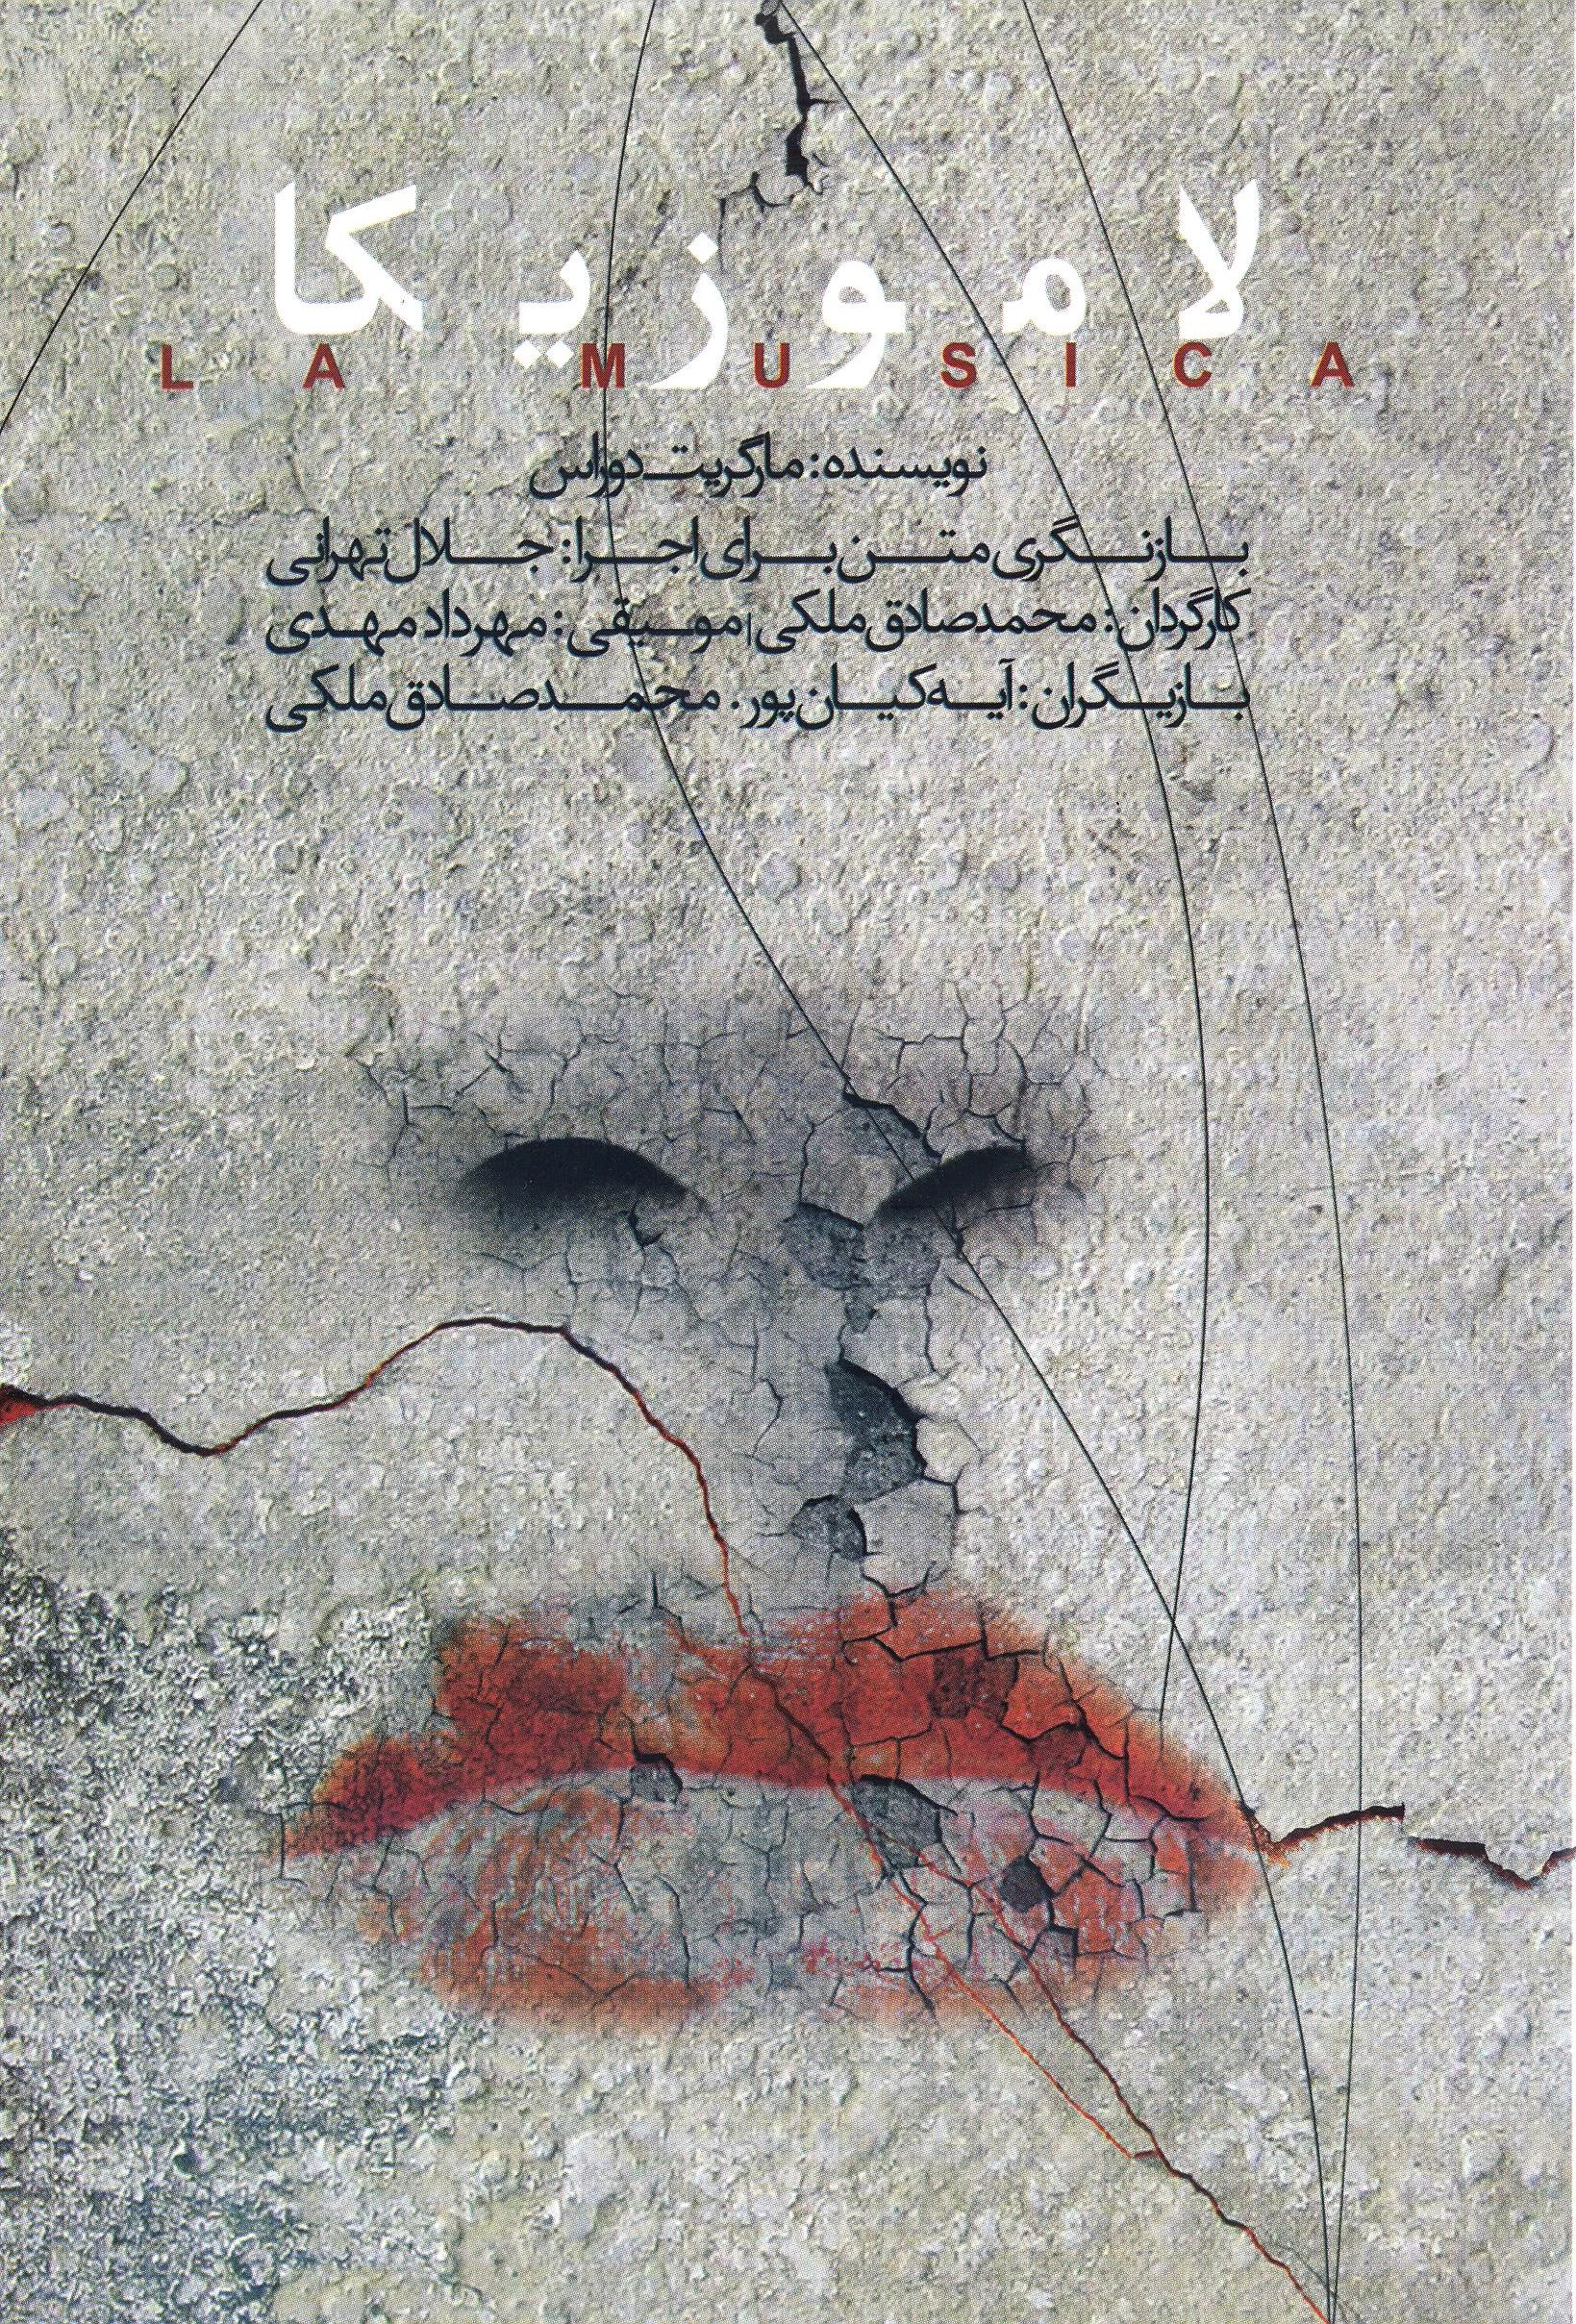 لاموزیکا
LA MUSICA
نویسنده: مارگریت دوراس
بازنگری متن برای اجرا: جلال تهرانی
کارگردان: محمدصادق ملکی | موسیقی: مهرداد مهدی
بازیگران: آیه کیان‌پور. محمدصادق ملکی